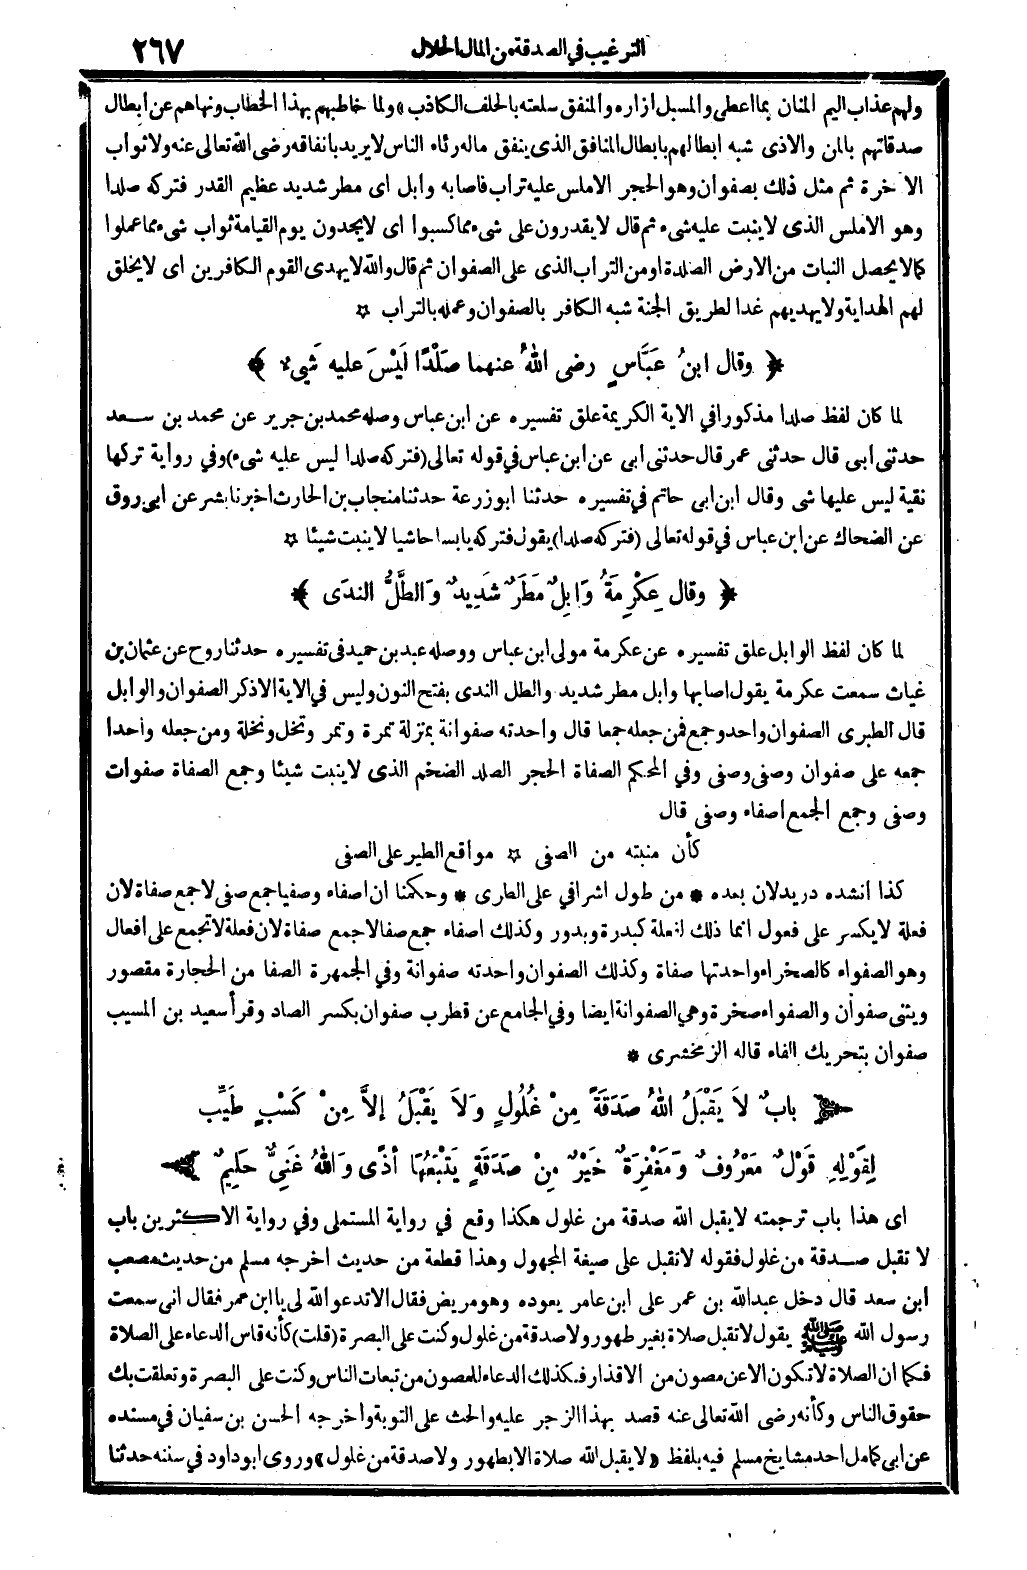 الترغيب في الصدقة من المال الحلال ٢٦٧
ولهم عذاب اليم المنان بما اعطى والمسبل ازاره والمنفق سلعته بالحلف الكاذب» ولما خاطبهم بهذا الخطاب ونهاهم عن ابطال
صدقاتهم بالمن والاذى شبه ابطالهم بابطال المنافق الذى ينفق ماله رئاء الناس لا يريد بانفاقه رضى الله تعالى عنه ولا ثواب
الآخرة ثم مثل ذلك بصفوان وهو الحجر الاملس عليه تراب فاصابه وابل اى مطر شديد عظيم القدر فتركه صلدا
وهو الاملس الذى لا ينبت عليه شىء ثم قال لا يقدرون على شىء مما كسبوا اى لا يجدون يوم القيامة ثواب شىء مما عملوا
كما لا يحصل النبات من الارض الصلدة او من التراب الذى على الصفوان ثم قال والله لا يهدى القوم الكافرين اى لا يخلق
لهم الهداية ولا يهديهم غدا لطريق الجنة شبه الكافر بالصفوان وعمله بالتراب ☆
﴿ وقال ابنُ عَبَّاسٍ رضى اللهُ عنهما صَلْدًا لَيْسَ عليه شَىْءٌ ﴾
لما كان لفظ صلدا مذكورا في الآية الكريمة علق تفسيره عن ابن عباس وصله محمد بن جرير عن محمد بن سعد
حدثنى ابى قال حدثنى عمى قال حدثنى ابى عن ابن عباس في قوله تعالى (فتركه صلدا ليس عليه شىء) وفي رواية تركها
نقية ليس عليها شى وقال ابن ابى حاتم في تفسيره حدثنا ابو زرعة حدثنا منجاب بن الحارث اخبرنا بشر عن ابى روق
عن الضحاك عن ابن عباس في قوله تعالى (فتركه صلدا) يقول فتركه يابسا حاشيا لا ينبت شيئا ☆
﴿ وقال عِكْرِمَةُ وَابِلٌ مَطَرٌ شَدِيدٌ وَالطَّلُّ الندَى ﴾
لما كان لفظ الوابل علق تفسيره عن عكرمة مولى ابن عباس ووصله عبد بن حميد فى تفسيره حدثنا روح عن عثمان بن
غياث سمعت عكرمة يقول اصابها وابل مطر شديد والطل الندى بفتح النون وليس في الاية الا ذكر الصفوان والوابل
قال الطبرى الصفوان واحد وجمع فمن جعله جمعا قال واحدته صفوانة بمنزلة تمرة وتمر ونخل ونخلة ومن جعله واحدا
جمعه على صفوان وصفى وصفى وفي المحكم الصفاة الحجر الصلد الضخم الذى لا ينبت شيئا وجمع الصفاة صفوات
وصفى وجمع الجمع اصفاء وصفى قال
كأن متنيه من الصفى ☆ مواقع الطير على الصفى
كذا انشده دريد لان بعده * من طول اشرافي على الطرى * وحكمنا ان اصفاء وصفيا جمع صفى لا جمع صفاة لان
فعلة لا يكسر على فعول انما ذلك لفعلة كبدرة وبدور وكذلك اصفاء جمع صفا لا جمع صفاة لان فعلة لا تجمع على افعال
وهو الصفواء كالصخراء واحدتها صفاة وكذلك الصفوان واحدته صفوانة وفي الجمهرة الصفا من الحجارة مقصور
ويثنى صفوان والصفواء صخرة وهي الصفوانة ايضا وفي الجامع عن قطرب صفوان بكسر الصاد وقرأ سعيد بن المسيب
صفوان بتحريك الفاء قاله الزمخشرى *
بابٌ لاَ يَقْبَلُ اللهُ صَدَقَةً مِنْ غُلُولٍ وَلاَ يَقْبَلُ إلاَّ مِنْ كَسْبٍ طَيِّبٍ
لِقَوْلِهِ قَوْلٌ مَعْرُوفٌ وَمَغْفِرَةٌ خَيْرٌ مِنْ صَدَقَةٍ يَتْبَعُهَا أذًى وَاللهُ غَنِيٌّ حَلِيمٌ
اى هذا باب ترجمته لا يقبل الله صدقة من غلول هكذا وقع في رواية المستملى وفي رواية الاكثرين باب
لا تقبل صدقة من غلول فقوله لا تقبل على صيغة المجهول وهذا قطعة من حديث اخرجه مسلم من حديث مصعب
ابن سعد قال دخل عبد الله بن عمر على ابن عامر يعوده وهو مريض فقال الا تدعو الله لى يا ابن عمر فقال انى سمعت
رسول الله ﷺ يقول لا تقبل صلاة بغير طهور ولا صدقة من غلول وكنت على البصرة (قلت) كأنه قاس الدعاء على الصلاة
فكما ان الصلاة لا تكون الا عن مصون من الاقذار فكذلك الدعاء للمصون من تبعات الناس وكنت على البصرة وتعلقت بك
حقوق الناس وكأنه رضى الله تعالى عنه قصد بهذا الزجر عليه والحث على التوبة واخرجه الحسن بن سفيان في مسنده
عن ابى كامل احد مشايخ مسلم فيه بلفظ «لا يقبل الله صلاة الا بطهور ولا صدقة من غلول» وروى ابو داود في سننه حدثنا